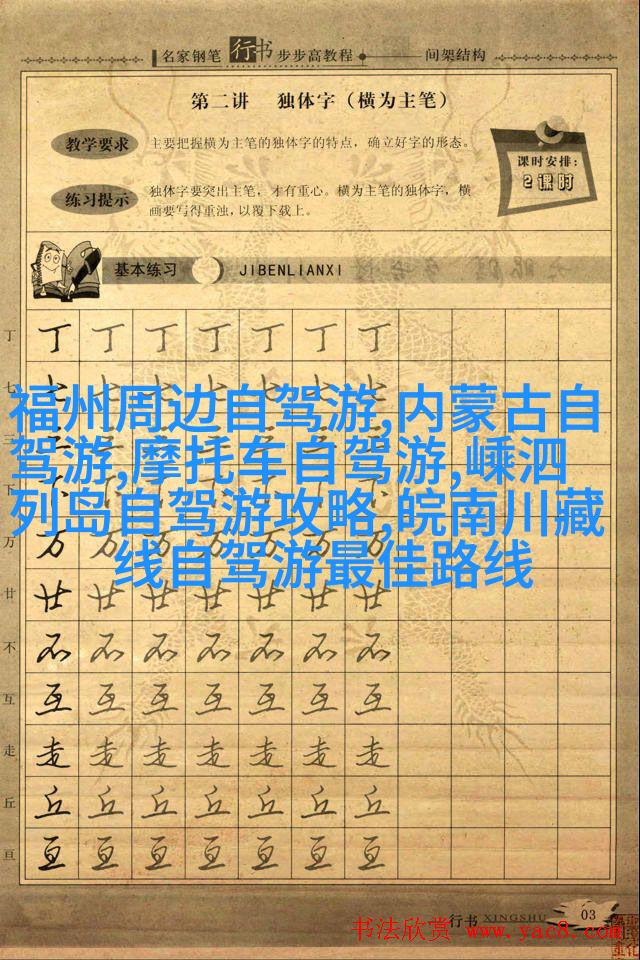 名家钢笔 行书 步步高教程 间架结构
第二讲 独体字（横为主笔）
教学要求 主要把握横为主笔的独体字的特点，确立好字的形态。
课时安排：
2课时
练习提示 独体字要突出主笔，才有重心。横为主笔的独体字，横
画要写得重浊，以覆下载上。
基本练习 JIBENLIANXI
丁 丁 丁 丁 丁 丁 丁 丁
七 七 七 七 七 七 七 七
福州周边自驾游,内蒙古自
驾游,摩托车自驾游,嵊泗
列岛自驾游攻略,皖南川藏
线自驾游最佳路线
万 万 万 万 万 万 万 万
廿 廿 廿 廿 廿 廿 廿 廿
不 不 不 不 不 不 不 不
互 互 互 互 互 互 互 互
走 走 走 走 走 走 走 走
丘 丘 丘 丘 丘 丘 丘 丘
亘 亘 亘 亘 亘 亘 亘 亘
行书 XINGSHU 03
书法欣赏 www.yac8.com